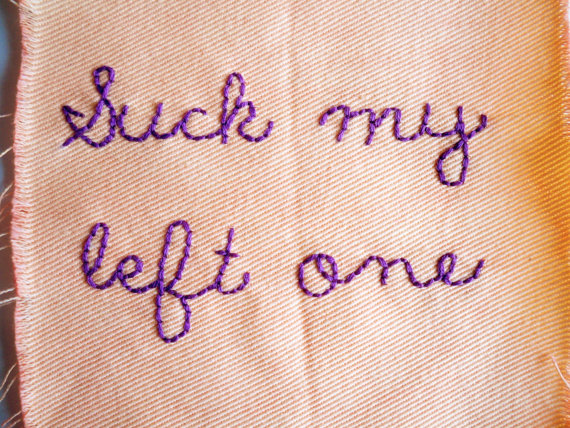 Suck my
left one